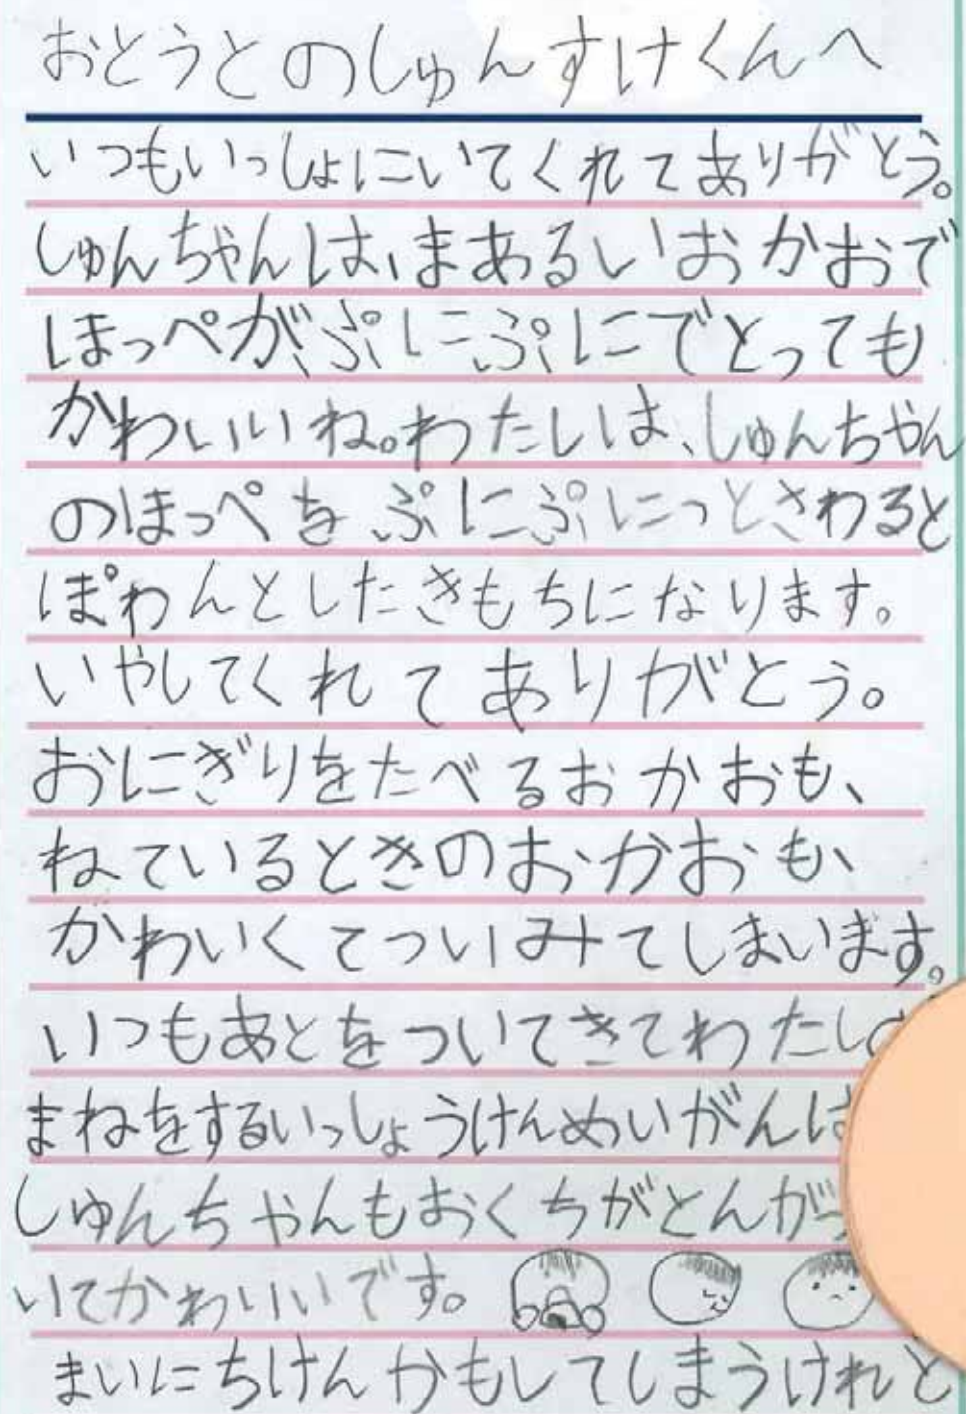 おとうとのしゅんすけくんへ
いつもいっしょにいてくれてありがとう。
しゅんちゃんは、まあるいおかおで
ほっぺが、ぷにぷにでとっても
かわいいね。わたしは、しゅんちゃん
のほっぺをぷにぷにっとさわると
ぽわんとしたきもちになります。
いやしてくれてありがとう。
おにぎりをたべるおかおも、
ねているときのおかおも、
かわいくてついみてしまいます。
いつもあとをついてきてわたし
まねをするいっしょうけんめいがん
しゅんちゃんもおくちがとんがっ
いてかわいいです。
まいにちけんかもしてしまうけれど